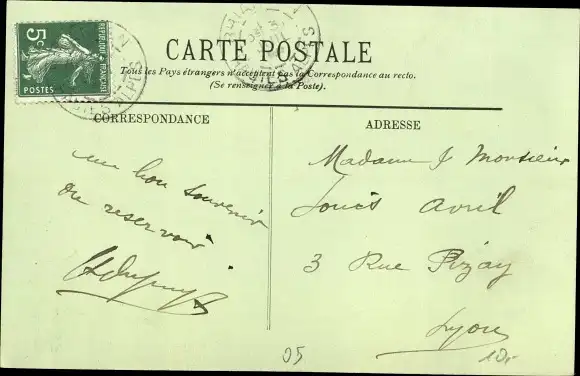 5c
REPUBLIQUE FRANÇAISE
POSTES
HTES ALPES
CARTE POSTALE
Tous les Pays étrangers n'acceptent pas la Correspondance au recto.
(Se renseigner à la Poste).
CORRESPONDANCE
un bon souvenir
du reservoir
ADRESSE
Madame & Monsieur
Louis Avril
3 Rue Pizay
Lyon
05
10,-